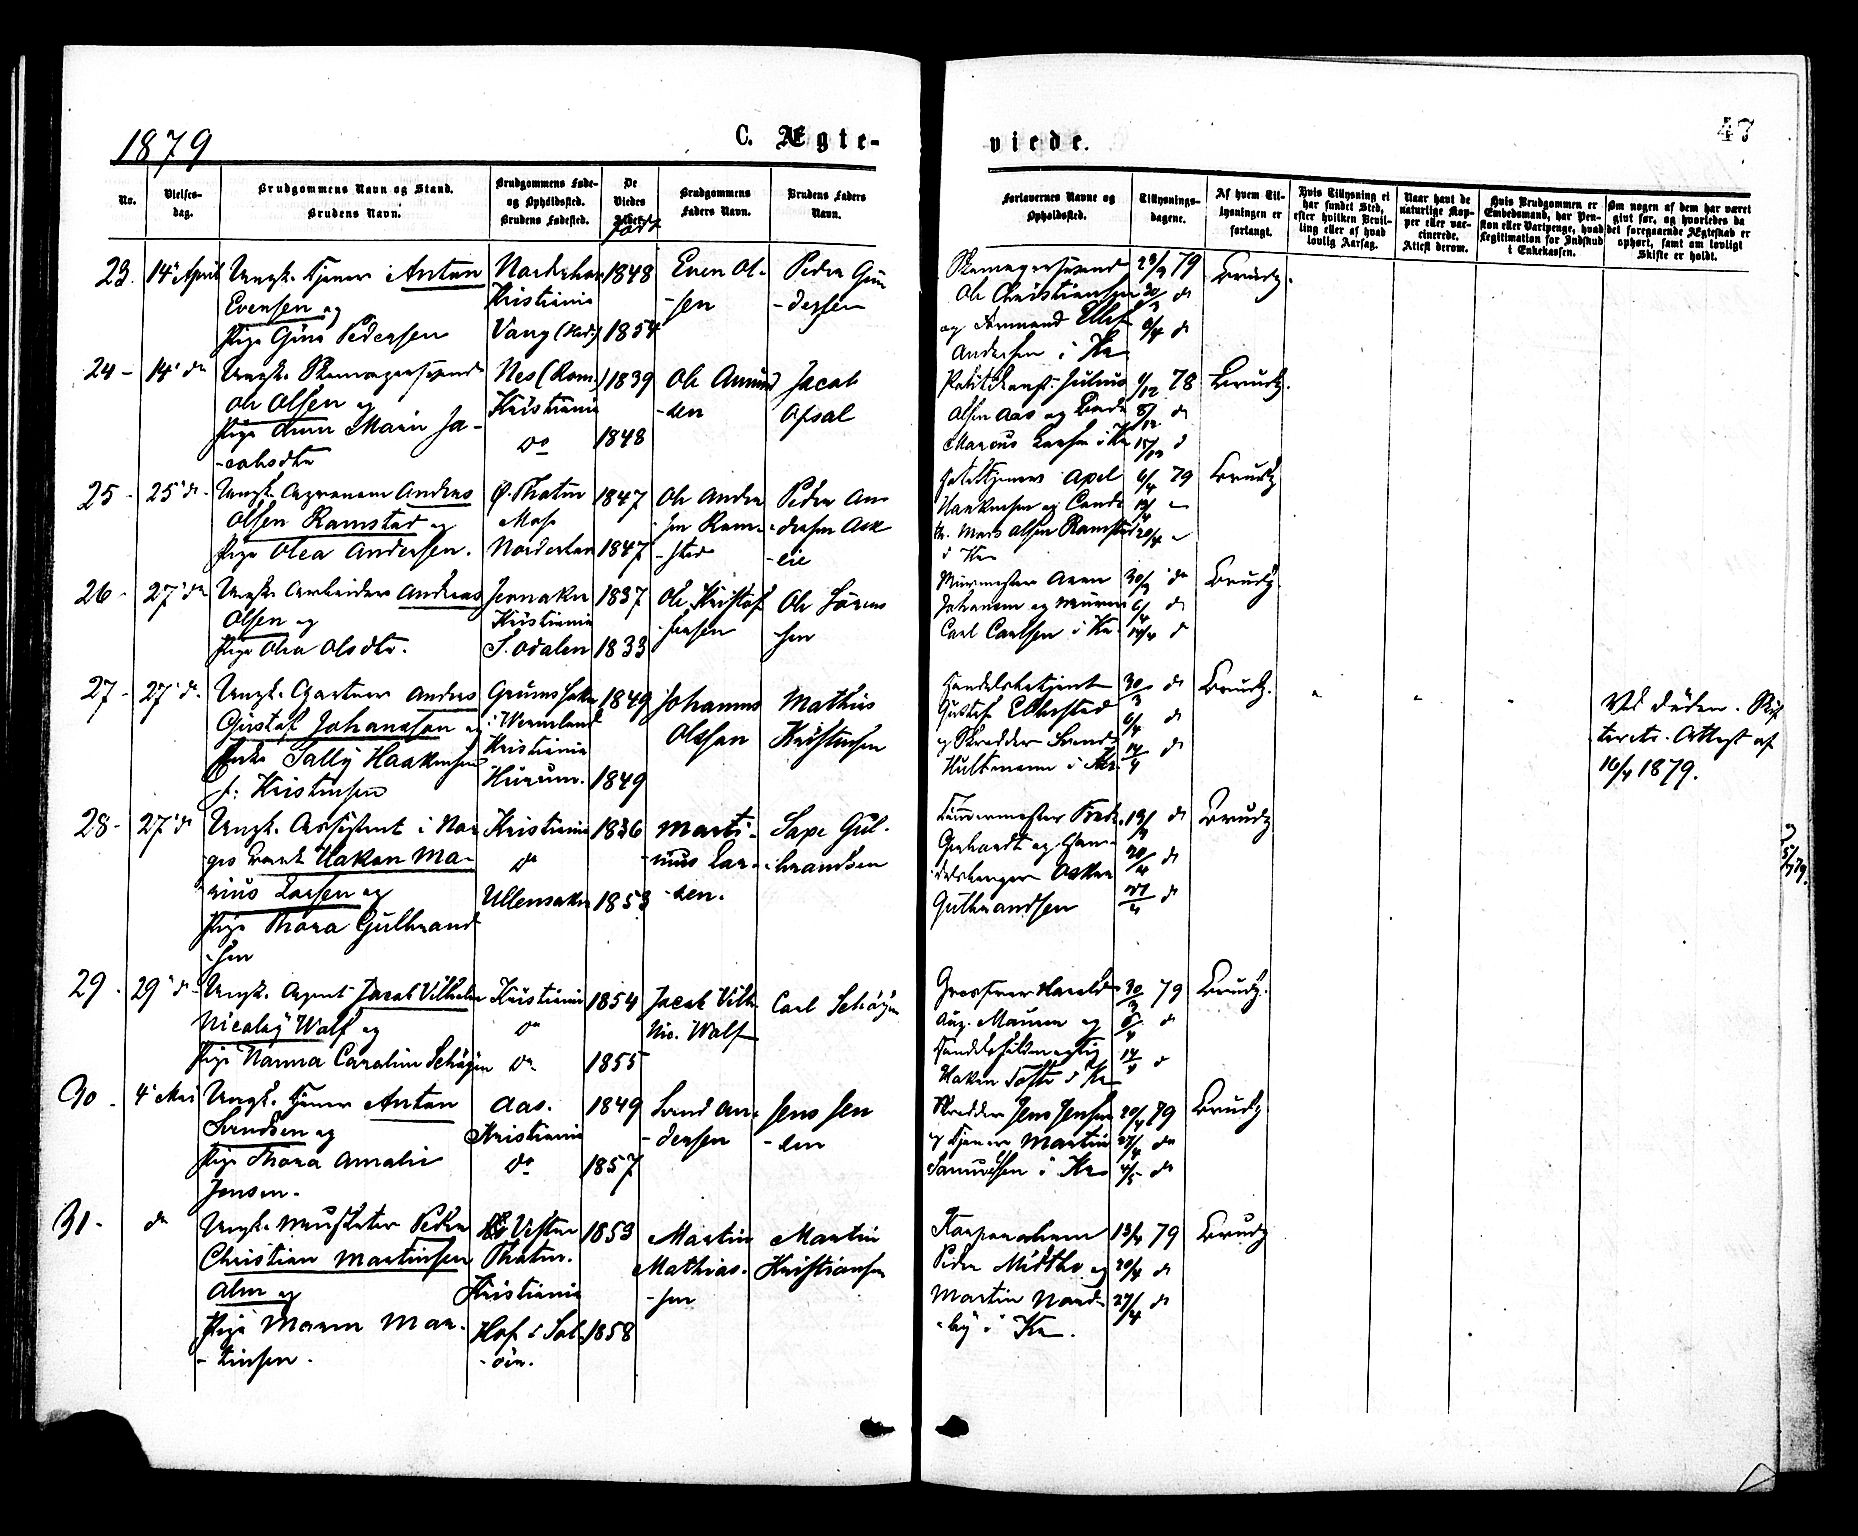 1879
C. Ægte-
viede.
47
No.
Vielses-
dag.
Brudgommens Navn og Stand.
Brudens Navn.
Brudgommens Føde-
og Opholdssted.
Brudens Fødested.
De
Viedes
Født
Brudgommens
Faders Navn.
Brudens Faders
Navn.
Forlovernes Navne og
Opholdssted.
Tillysnings-
dagene.
Af hvem Til-
lysningen er
forlangt.
Hvis Tillysning ei
har fundet Sted,
efter hvilken Bevil-
ling eller af hvad
lovlig Aarsag.
Naar havt de
naturlige Kop-
per eller vac-
cinerede.
Attest derom.
Hvis Brudgommen er
Embedsmand, har Pen-
sion eller Vartpenge, hvad
Legitimation for Indskud
i Enkekassen.
Om nogen af dem har været
gift før, og hvorledes da
det foregaaende Ægteskab er
ophørt, samt om lovligt
Skifte er holdt.
23. 14' April Ungk. Tjener Anton
Evensen og
Pige Gina Pedersen
Kristiania
Vang (Hed.)
1848
1854
Even Ol-
-sen
Peder Gun
-dersen
Ole Christiansen
og Formand Ellef
Andersen i Kr
23/3 79
30/3 do
6/4 do
Brudg.
24 - 14' do Ungk.
Ole Olsen og
Pige Anna Marie Ja-
-cobsdtr
Nes (Rom.)
Kristiania
do
1839
1848
Ole Amund
-sen
Jacob
Opsal
Julius
Olsen Aas og
Marcus Larsen i Kr
1/12 78
8/12 do
15/12 d
Brudg.
25 - 25' do - Ungk. Andreas
Olsen Ramstad og
Pige Olea Andersen.
Ø. Thoten
Moss
Norderhov
1847
1847
Ole Andre
-sen Ram-
-stad
Peder An-
-dersen Ask
-eie
Mads Olsen Ramstad
i Kr
6/4 79
20/4
Brudg
26 - 27' do Ungk. Arbeider Andreas
Olsen og
Pige Olea Olsdtr.
Jevnaker
Kristiania
S. Odalen
1837
1833
Ole Kristof
-fersen
Ole Søren
-sen
Murmester
Johansen og Murer
Carl Carlsen i Kr.
30/3 do
6/4 do
14/4 d
Brudg.
27 - 27' do. Ungk. Gartner Andreas
Gustaf Johansson og
Enke Sally Haakensen
f: Kristensen
i Wermland
Kristiania
Hurum.
1849
1849
Johannes
Olsson
Mathias
Kristensen
Handelsbetjent
Gustaf
og Skredder
Hultmann i Kr.
30/3 do
6/4 do
14/4 do
Brudg.
Ved Døden. Skif
terets. Attest af
16/4 1879.
28 - 27' do Ungk. Assistent i Nor
ges Bank Haken Ma-
rius Larsen og
Pige Thora Gulbrand
-sen
Kristiania
do
Ullensaker
1836
1853
Marti-
-nus Lar-
-sen.
Saxe Gul-
-brandsen
Tømmermester Fredr.
Gerhardt og Han-
delsborger Asker
Gulbrandsen
13/4 do
20/4 do
27/4 do
Brudg
29. 29' do - Ungk. Agent Jacob Vilhelm
Nicolay Wolf og
Pige Nanna Caroline Schøyen
Kristiania
do
do
1854
1855
Jacob Vilh
Nic. Wolf
Carl Schøyen
Grosserer Harald
Aug. og
Handelsfuldmægtig
Haken Tofte i Kr
30/3 79
6/4 do
14/4 do
Brudg.
30. 4' Mai Ungk. Tjener Anton
Svendsen og
Pige Thora Amalie
Jensen.
Aas.
Kristiania
do
1849
1857
Svend An-
-dersen
Jens Jen
-sen
Skredder Jens Jensen
og Tjener Martin
Samuelsen i Kr
20/4 79
27/4 do
4/5 do
Brudg
31. do Ungk. Musketer Peder
Christian Martinsen
Alm og
Pige Maren Mar-
-tinsen.
Vestre
Thoten.
Kristiania
Hof i Sol-
-øer.
1853
1858
Martin
Mathias-
-sen
Martin
Kristiansen
Peder Midtbo og
Martin Nord-
-by i Kr.
13/4 79
20/4 do
27/4 do
Brudg